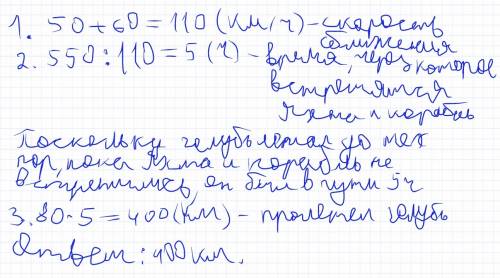 1. 50+60=110 (км/ч) - скорость
сближения
2. 550:110=5 (ч) - время, через которое
встретятся
яхта и корабль
Поскольку голубь летал до тех
пор, пока яхта и корабль не
встретились, он был в пути 5ч
3. 80·5=400 (км) - пролетел голубь
Ответ: 400 км.